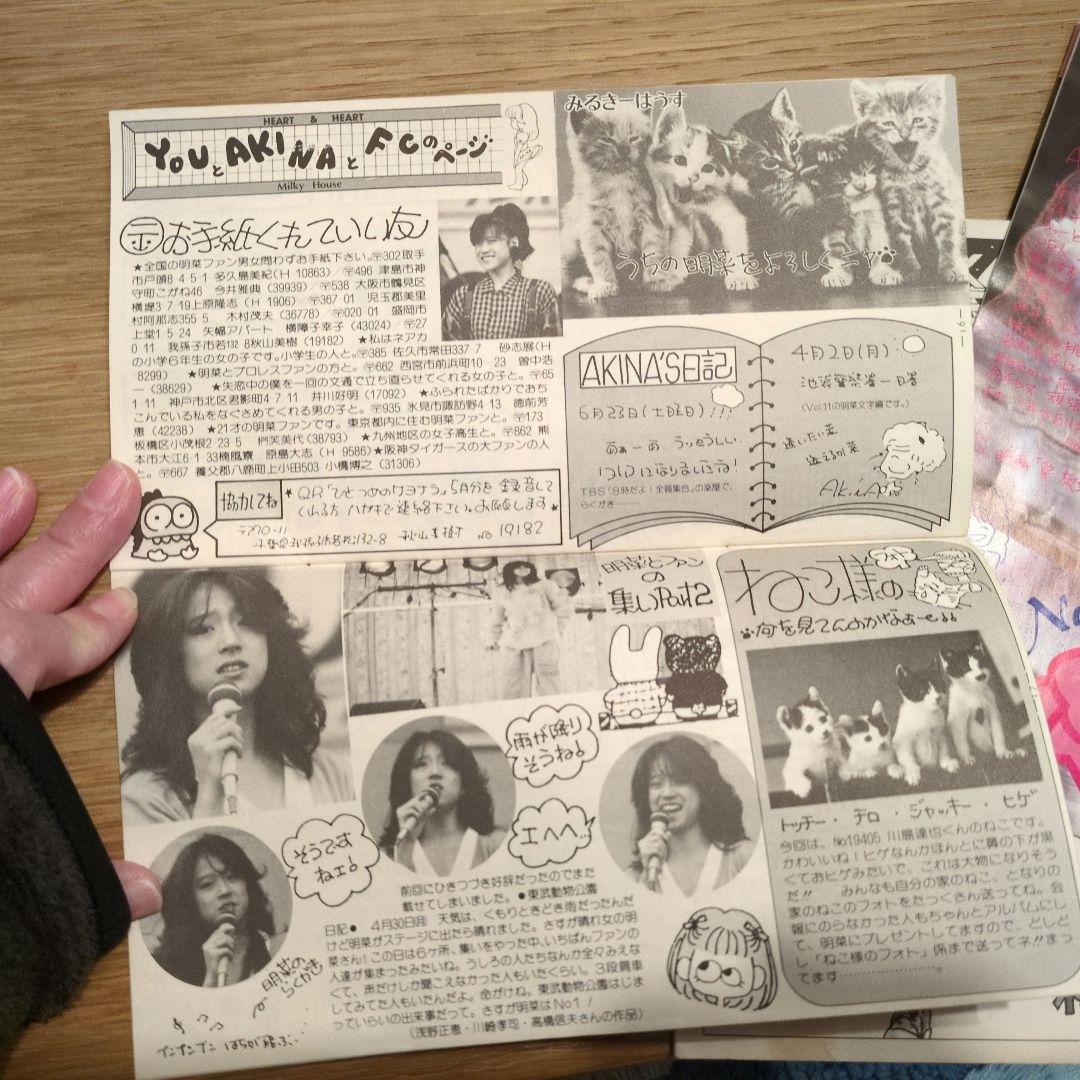 HEART & HEART
YOUとAKINAとFCのページ
Milky House
お手紙くれていい友
★全国の明菜ファン男女問わずお手紙下さい。〒302取手
市戸頭8 4 5 1 多久島美紀(H 10863)／〒496 津島市神
守町こがね46 今井雅典(39939)／〒538 大阪市鶴見区
横堤3 7 19上原隆志(H 1906)／〒367 01 児玉郡美里
村阿那志355 5 木村茂夫(36778)／〒020 01 盛岡市
上堂1 5 24 矢幅アパート 横障子幸子(43024)／〒27
0 11 我孫子市若132 8秋山美樹(19182) ★私はネアカ
の小学6年生の女の子です。小学生の人と。〒385 佐久市常田337 7 砂志展(H
8299) ★明菜とプロレスファンの方と。〒662 西宮市前浜町10 23 曽中浩
一(38629) ★失恋中の僕を一回の文通で立ち直らせてくれる女の子と。〒65
1 11 神戸市北区君影町4 7 11 井川好明(17092) ★ふられたばかりでおち
こんでいる私をなぐさめてくれる男の子と。〒935 氷見市諏訪野4 13 徳前芳
恵(42238) ★21才の明菜ファンです。東京都内に住む明菜ファンと。〒173
板橋区小茂根2 23 5 椚芙美代(38793) ★九州地区の女子高生と。〒862 熊
本市大江6 1 33楠風寮 原島大志(H 9586)★阪神タイガースの大ファンの人
と。〒667 養父郡八鹿町上小田503 小橋博之(31306)
協力してね
★QR「ひとつめのサヨナラ」5月分を録音して
くれる方ハガキで連絡下さい。お願いします★
〒270-11
秋山美樹 No 19182
みるきーはうす
うちの明菜をよろしくニャ
—16—
AKINA'S日記
6月23日(土曜日)!!!
あぁーあ うりょうしい
ついになりましたョ!
TBS「8時だよ!全員集合」の楽屋で、
らくがき………
4月2日(月)
池袋警察署一日署
(Vol.11の明菜文字編です。)
逢いたい菜
逢える川菜
AkinA
明菜とファン
の
集いPart2
雨が降り
そうねぇ
エヘヘ…
そうです
ねェ。
明菜の
らくがき
ブンブンブン はちが飛ぶ…
前回にひきつづき好評だったのでまた
載せてしまいました。●東武動物公園
日記● 4月30日(月) 天気は、くもりときどき雨だったんだ
けど明菜がステージに出たら晴れました。さすが晴れ女の明
菜さん!この日は6ケ所、集いをやった中、いちばんファンの
人達が集まったみたいね。うしろの人たちなんか全々みえな
くて、声だけしか聞こえなかった人もいたくらい。3段肩車
してみてた人もいたんだよ。命がけね。東武動物公園はじま
っていらいの出来事だって。さすが明菜はNo1!
(浅野正恵・川崎孝司・高橋信夫さんの作品)
ねこ様の
フォト
何を見てんのかなぁ〜
トッチー・テロ・ジャッキー・ヒゲ
今回は、No19405 川島達也くんのねこです。
かわいいね!ヒゲなんかほんとに鼻の下が黒
くておヒゲみたいで、これは大物になりそう
だ!! みんなも自分の家のねこ、となりの
家のねこのフォトをたっくさん送ってね。会
報にのらなかった人もちゃんとアルバムにし
て、明菜にプレゼントしてますので、どしど
し「ねこ様のフォト」係まで送ってネ!!まっ
てます…………………。